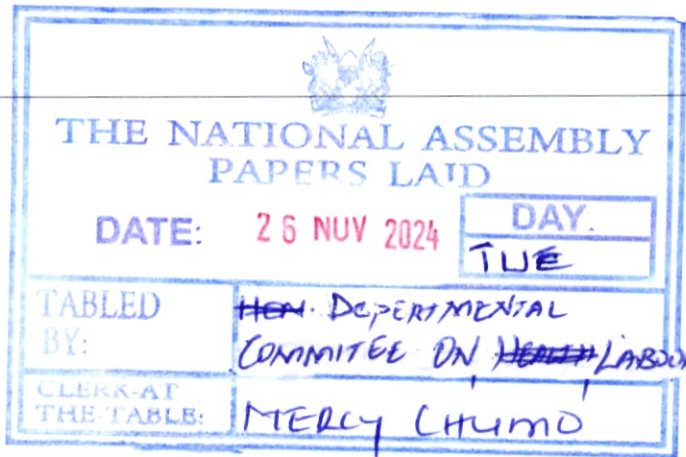 THE NATIONAL ASSEMBLY
PAPERS LAID
DATE: 26 NUV 2024 DAY.
TUE
TABLED BY: HON. DEPERTMENTAL
COMMITEE ON HEALTH LABOU
CLERK-AT THE-TABLE: MERCY CHUMO